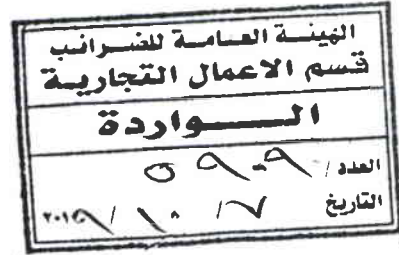 الهيئة العامة للضرائب
قسم الاعمال التجارية
الواردة
العدد / ٥٩٠٩
التاريخ ٧ / ١٠ / ٢٠١٩